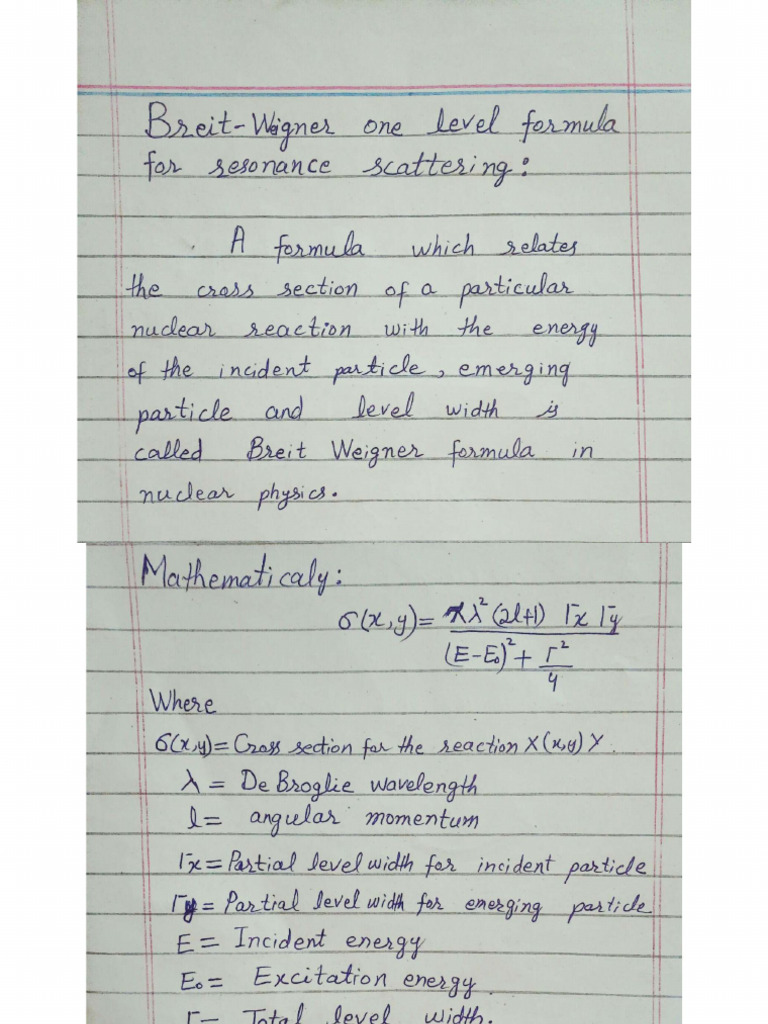 Breit-Weigner one level formula
for resonance scattering:
A formula which relates
the cross section of a particular
nuclear reaction with the energy
of the incident particle, emerging
particle and level width is
called Breit Weigner formula in
nuclear physics.
Mathematicaly:
σ(x,y)= πλ²(2l+1) Γx Γy
(E-E₀)²+ Γ²/4
Where
σ(x,y)= Cross section for the reaction X(x,y)Y.
λ = De Broglie wavelength
l = angular momentum
Γx = Partial level width for incident particle
Γy = Partial level width for emerging particle
E = Incident energy
E₀ = Excitation energy
Γ = Total level width.